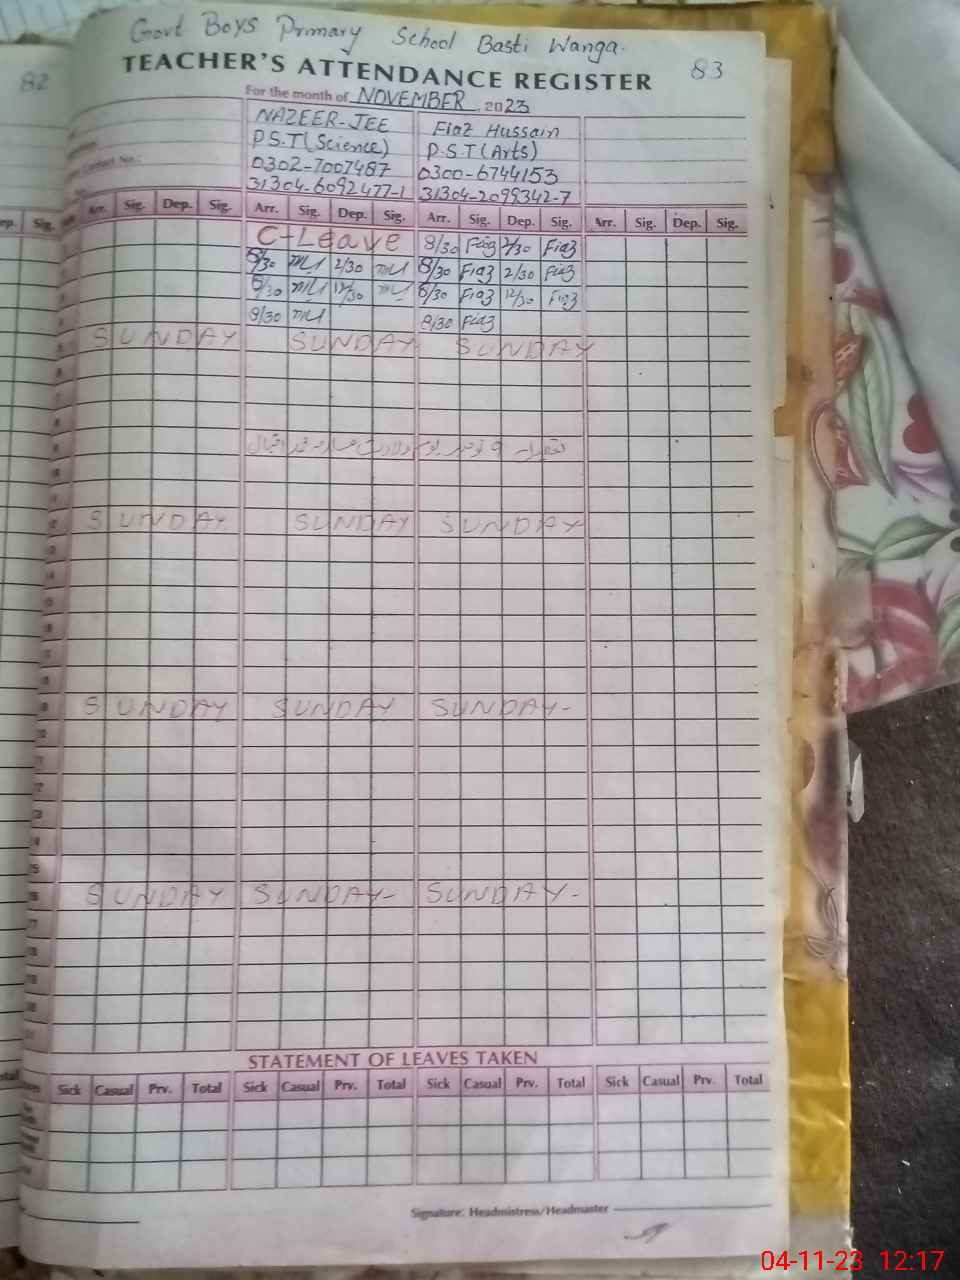 82
Govt Boys Primary School Basti Wanga.
TEACHER'S ATTENDANCE REGISTER 83
For the month of NOVEMBER, 2023
NAZEER-JEE Fiaz Hussain
P.S.T (Science) P.S.T (Arts)
Contact No.: 0302-7007487 0300-6744153
31304-6092477-1 31304-2099342-7
Sig. Arr. Sig. Dep. Sig. Arr. Sig. Dep. Sig. Arr. Sig. Dep. Sig. Arr. Sig. Dep. Sig.
C-Leave 8/30 Fiaz 2/30 Fiaz
8/30 2/30 8/30 Fiaz 2/30 Fiaz
8/30 12/30 8/30 Fiaz 12/30 Fiaz
8/30 8/30 Fiaz
SUNDAY SUNDAY SUNDAY
SUNDAY SUNDAY SUNDAY
SUNDAY SUNDAY SUNDAY-
SUNDAY SUNDAY- SUNDAY-
STATEMENT OF LEAVES TAKEN
Sick Casual Prv. Total Sick Casual Prv. Total Sick Casual Prv. Total Sick Casual Prv. Total
Signature: Headmistress/Headmaster
04-11-23 12:17